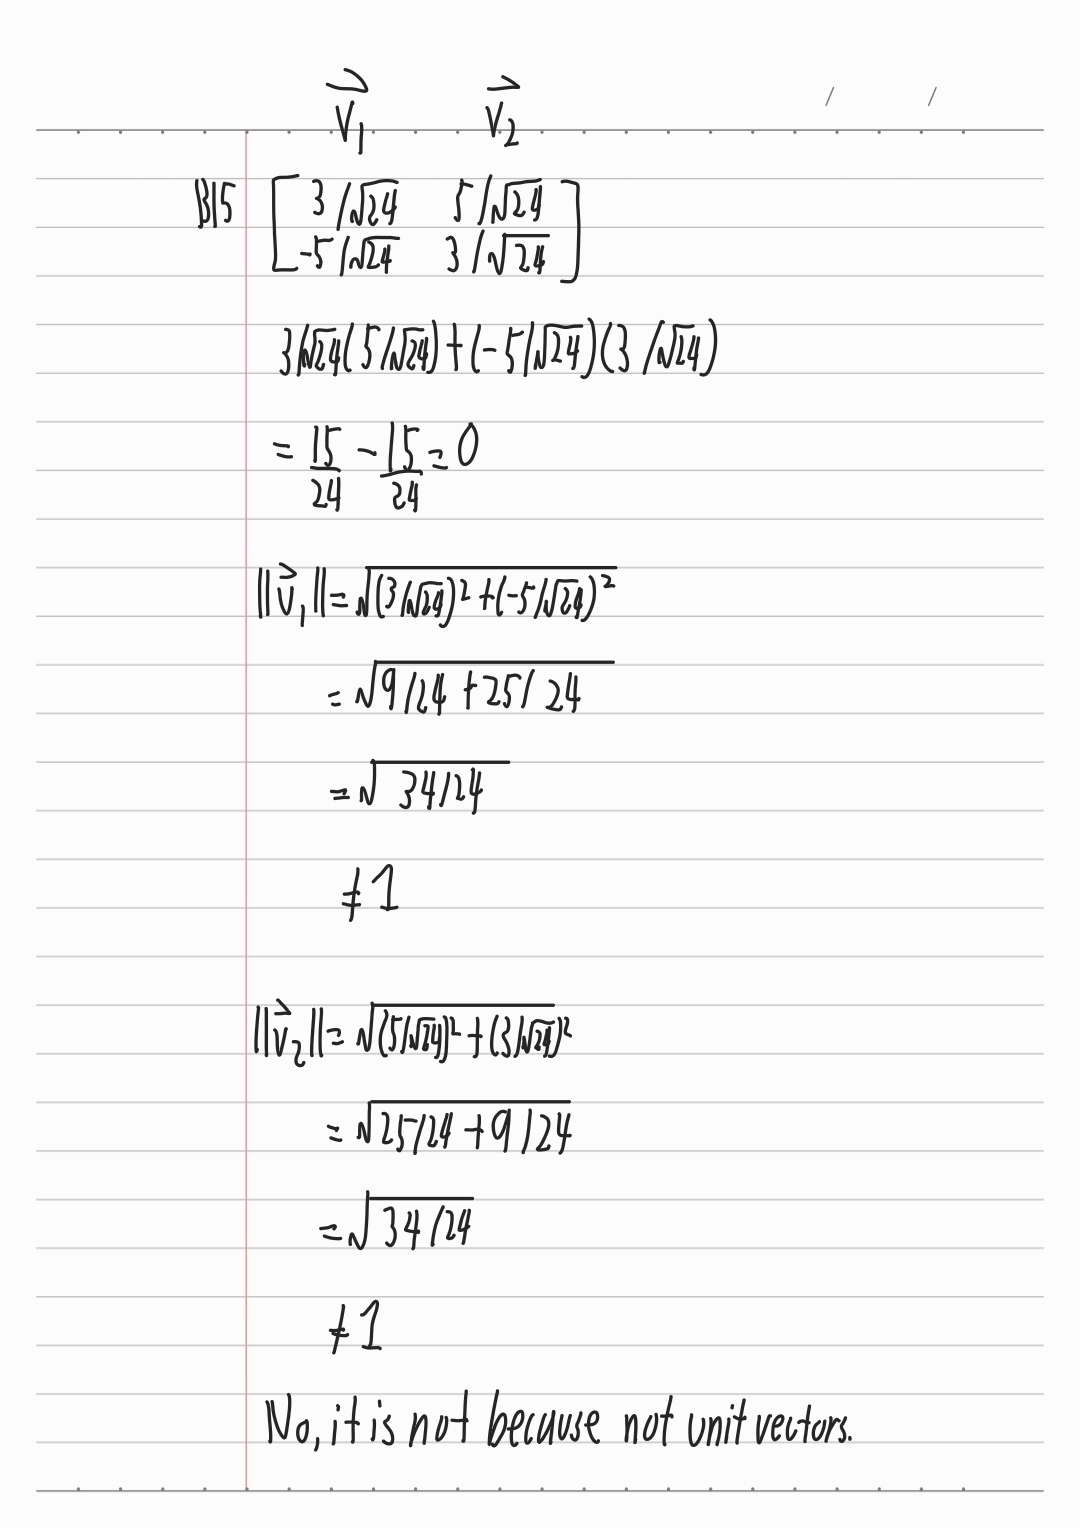 v⃗₁ v⃗₂
/ /
B15 [ 3/√24 5/√24
-5/√24 3/√24 ]
3/√24(5/√24)+(-5/√24)(3/√24)
= 15/24 - 15/24 = 0
||v⃗₁||= √((3/√24)²+(-5/√24)²)
= √(9/24+25/24)
= √(34/24)
≠1
||v⃗₂||= √((5/√24)²+(3/√24)²)
= √(25/24+9/24)
= √(34/24)
≠1
No, it is not because not unit vectors.